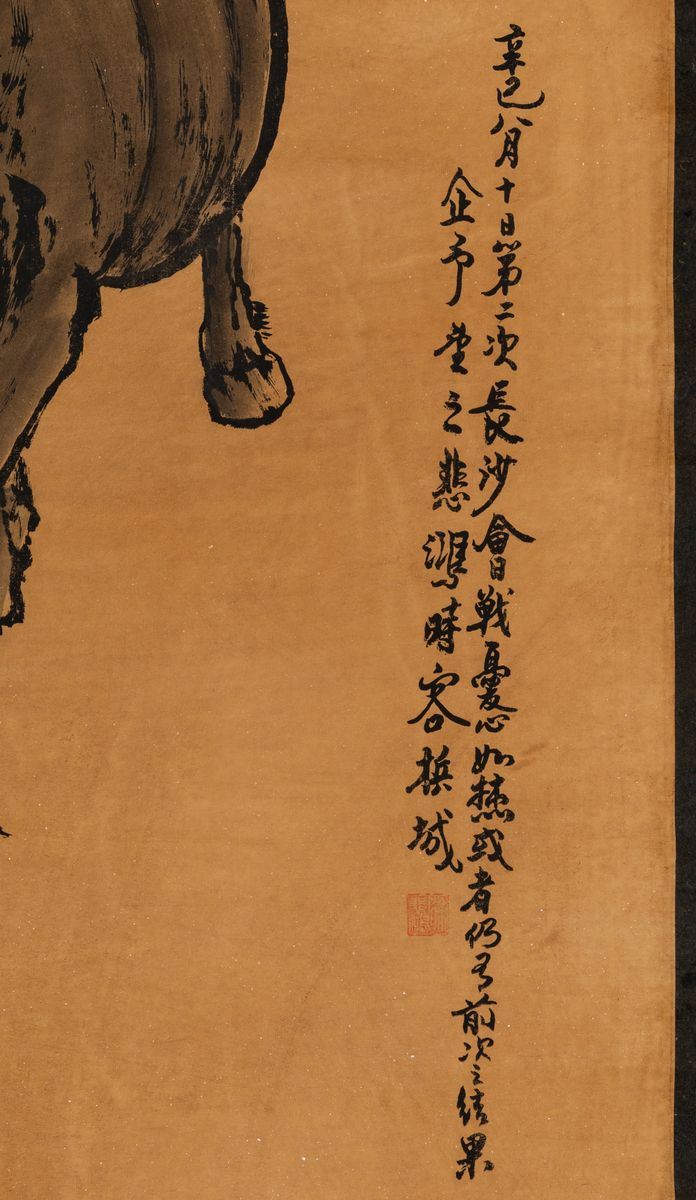 辛巳八月十日第二次長沙會戰憂心如焚或者仍有前次之結果
企予望之悲鴻時客槟城